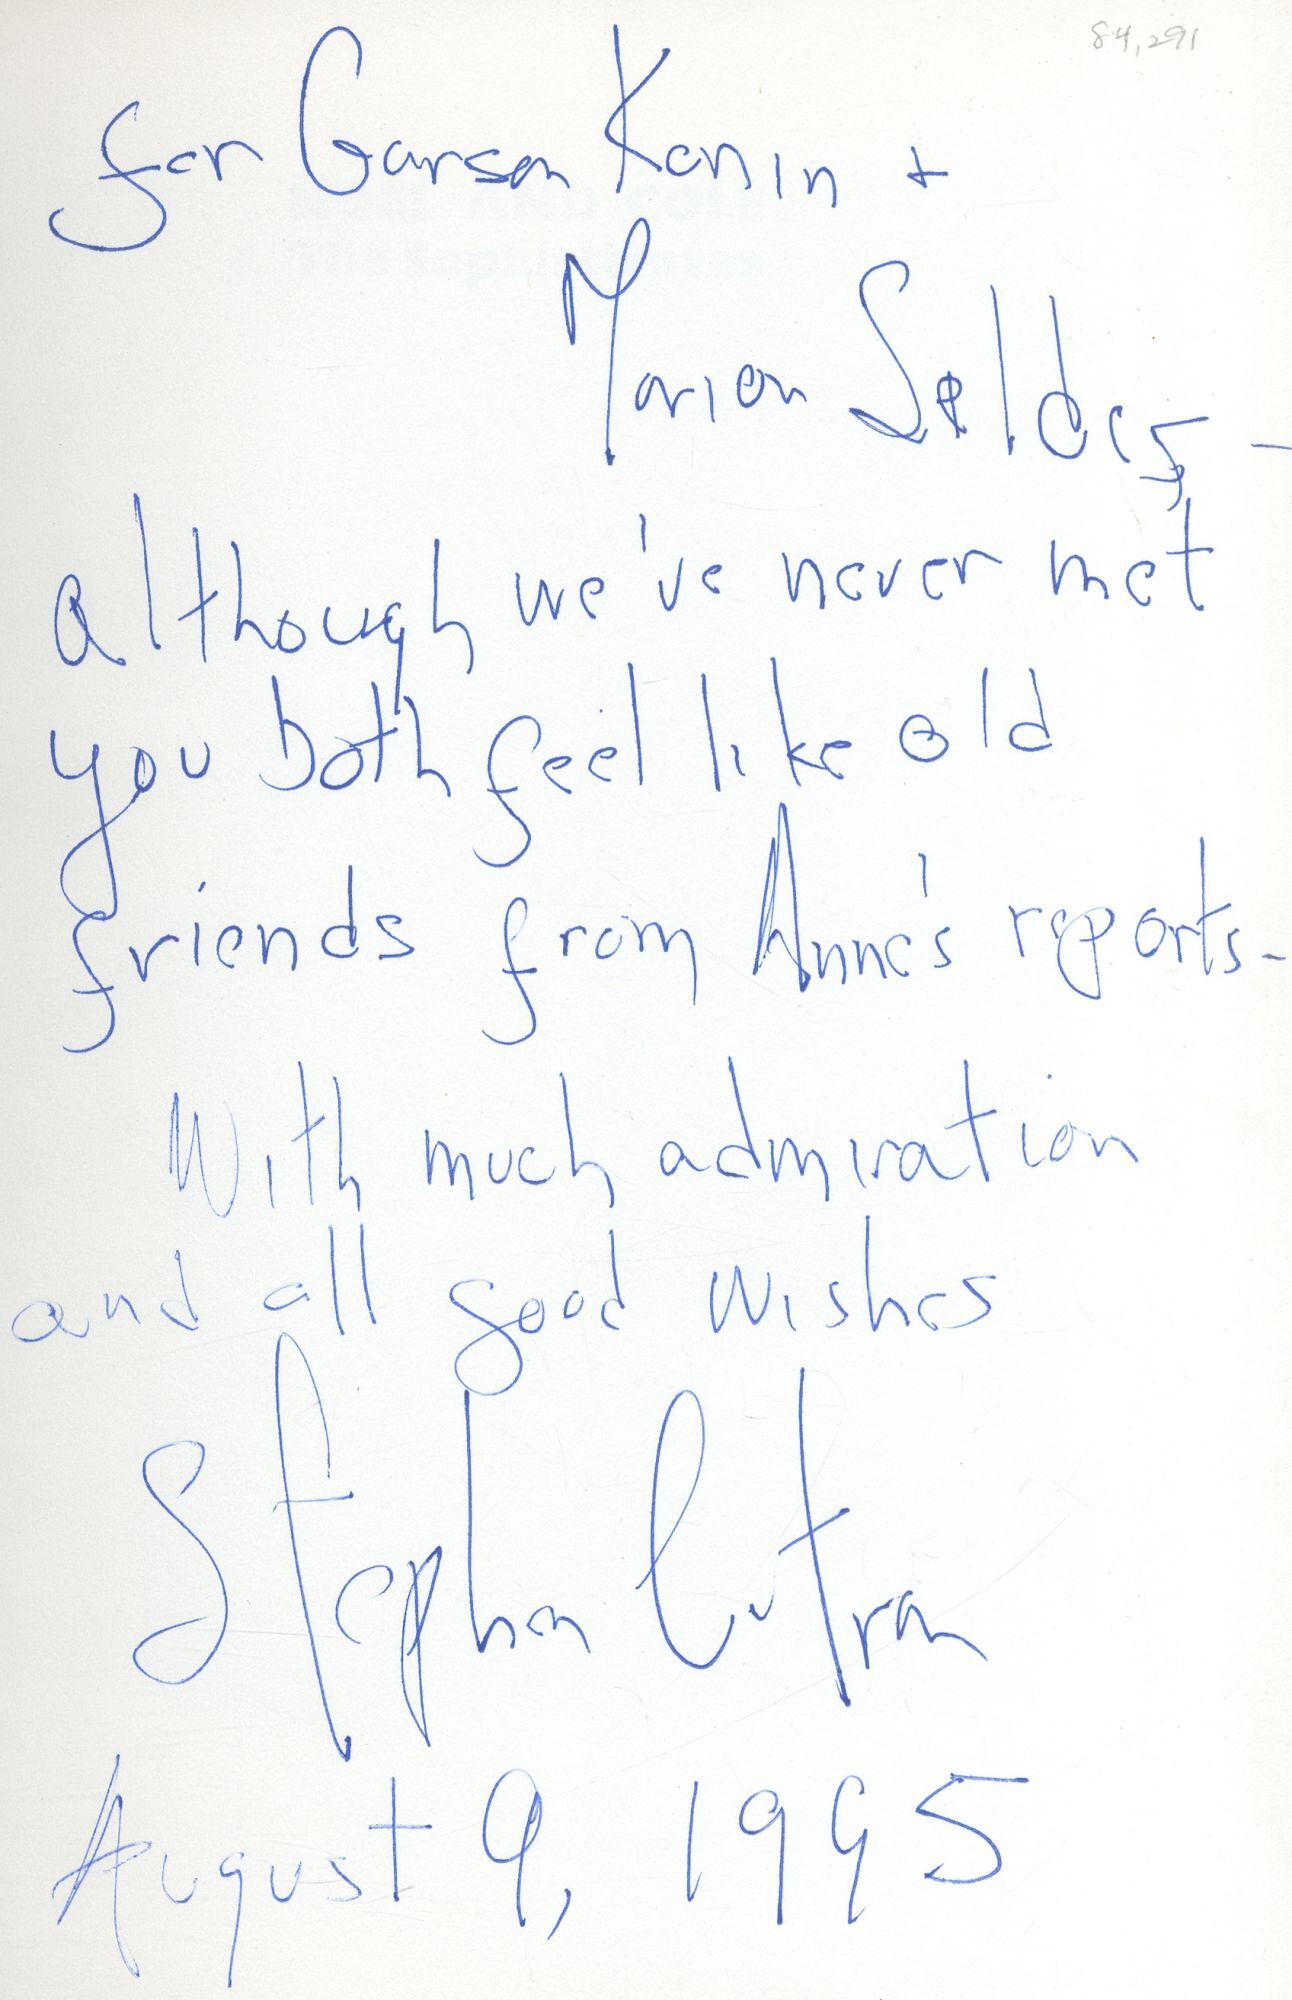 84,291
for Garson Kanin +
Marian Seldes –
although we've never met
you both feel like old
friends from Anne's reports –
With much admiration
and all good wishes
Stephen Citron
August 9, 1995